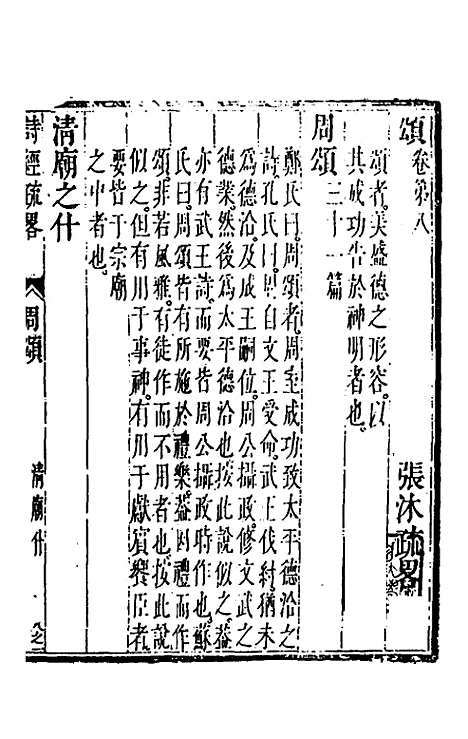 頌 卷第八 張沐疏略
頌者美盛德之形容以
其成功告於神明者也
周頌 三十一篇
鄭氏曰周頌者周室成功致太平德洽之
詩孔氏曰周自文王受命武王伐紂猶未
爲德洽及成王嗣位周公攝政修文武之
德業然後爲太平德洽也按此說似之葢
亦有武王詩而要皆周公攝政時作也蘇
氏曰周頌皆有所施於禮樂葢因禮而作
頌非若風雅有徒作而不用者也按此說
似之但有用于事神有用于獻賓饗臣者
要皆于宗廟
之中者也
清廟之什
詩經疏略 周頌 清廟什 八之一